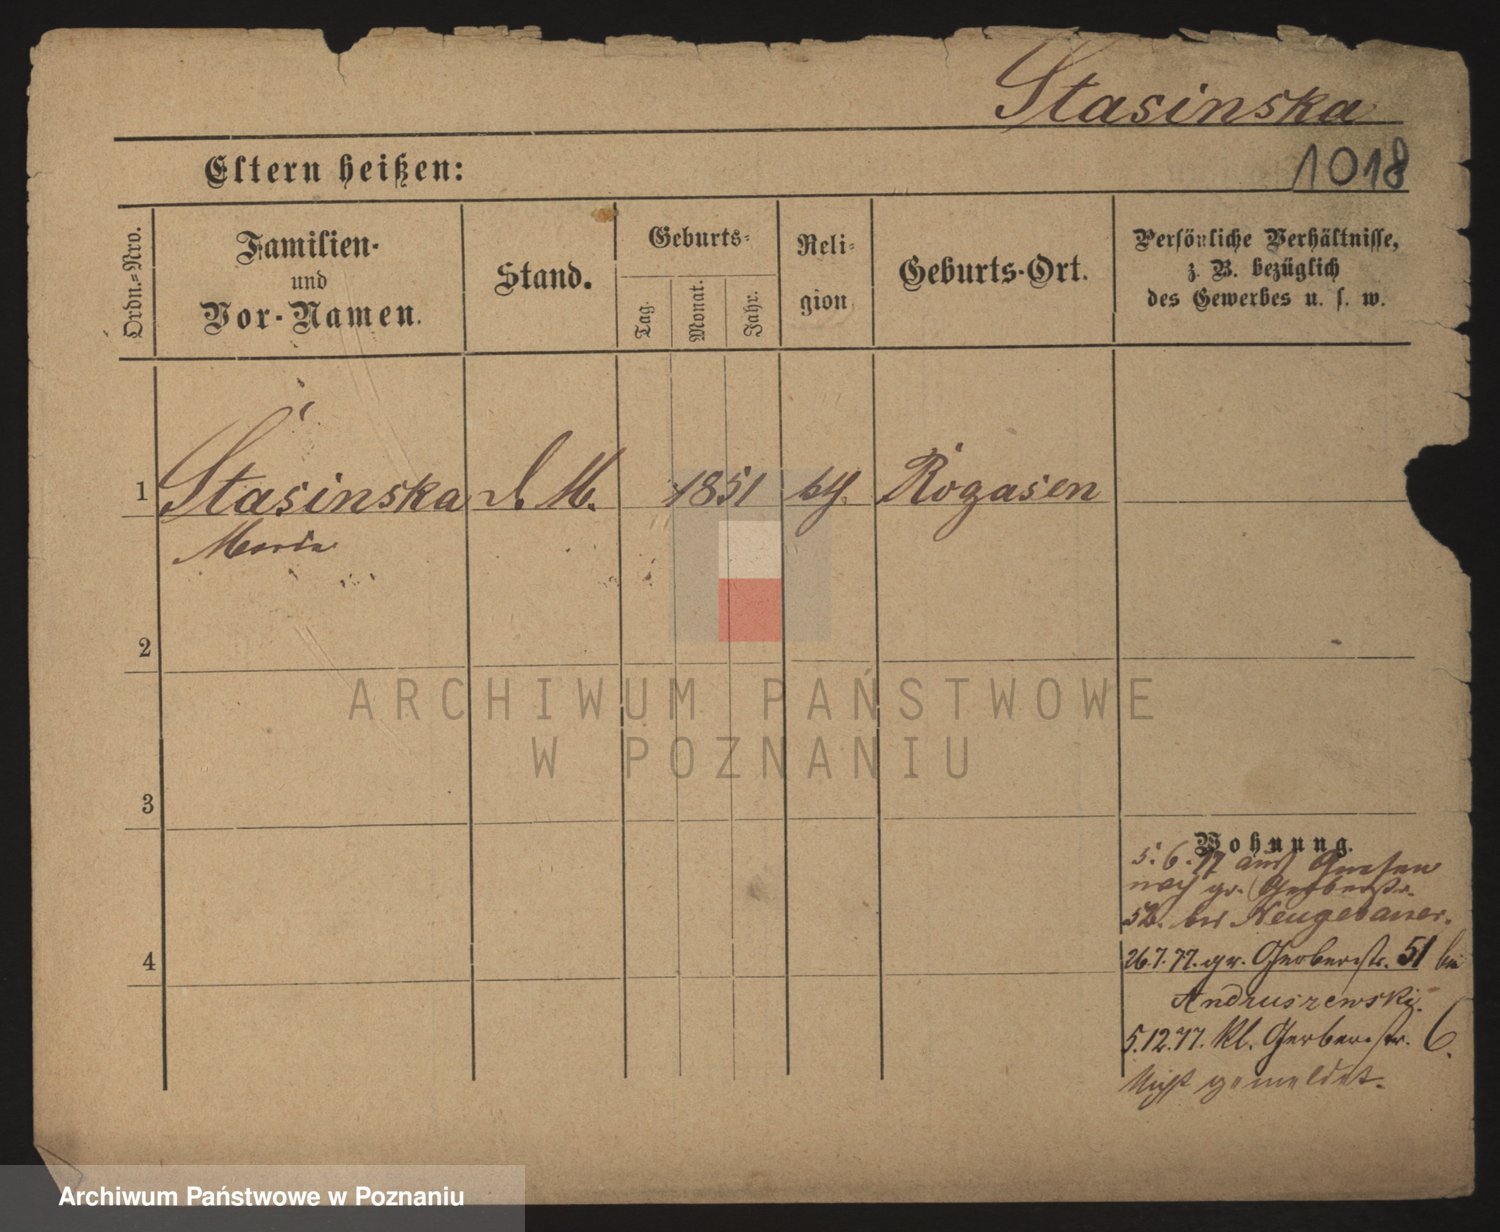 Stasinska
1018
Eltern heißen:
Ordn.-Nro.
Familien-
und
Vor-Namen.
Stand.
Geburts-
Tag.
Monat.
Jahr.
Reli-
gion
Geburts-Ort.
Persönliche Verhältnisse,
z. B. bezüglich
des Gewerbes u. s. w.
1 Stasinska d. M. 1851 Rogasen
Maria
2
3
4
Wohnung.
5. 6. 77 aus Gnesen
nach gr. Gerberstr.
52. bei Neugebauer.
26.7.77. gr. Gerberstr. 51 bei
Andruszewski.
5.12.77. kl. Gerberstr. 6.
Nicht gemeldet.
ARCHIWUM PAŃSTWOWE
W POZNANIU
Archiwum Państwowe w Poznaniu